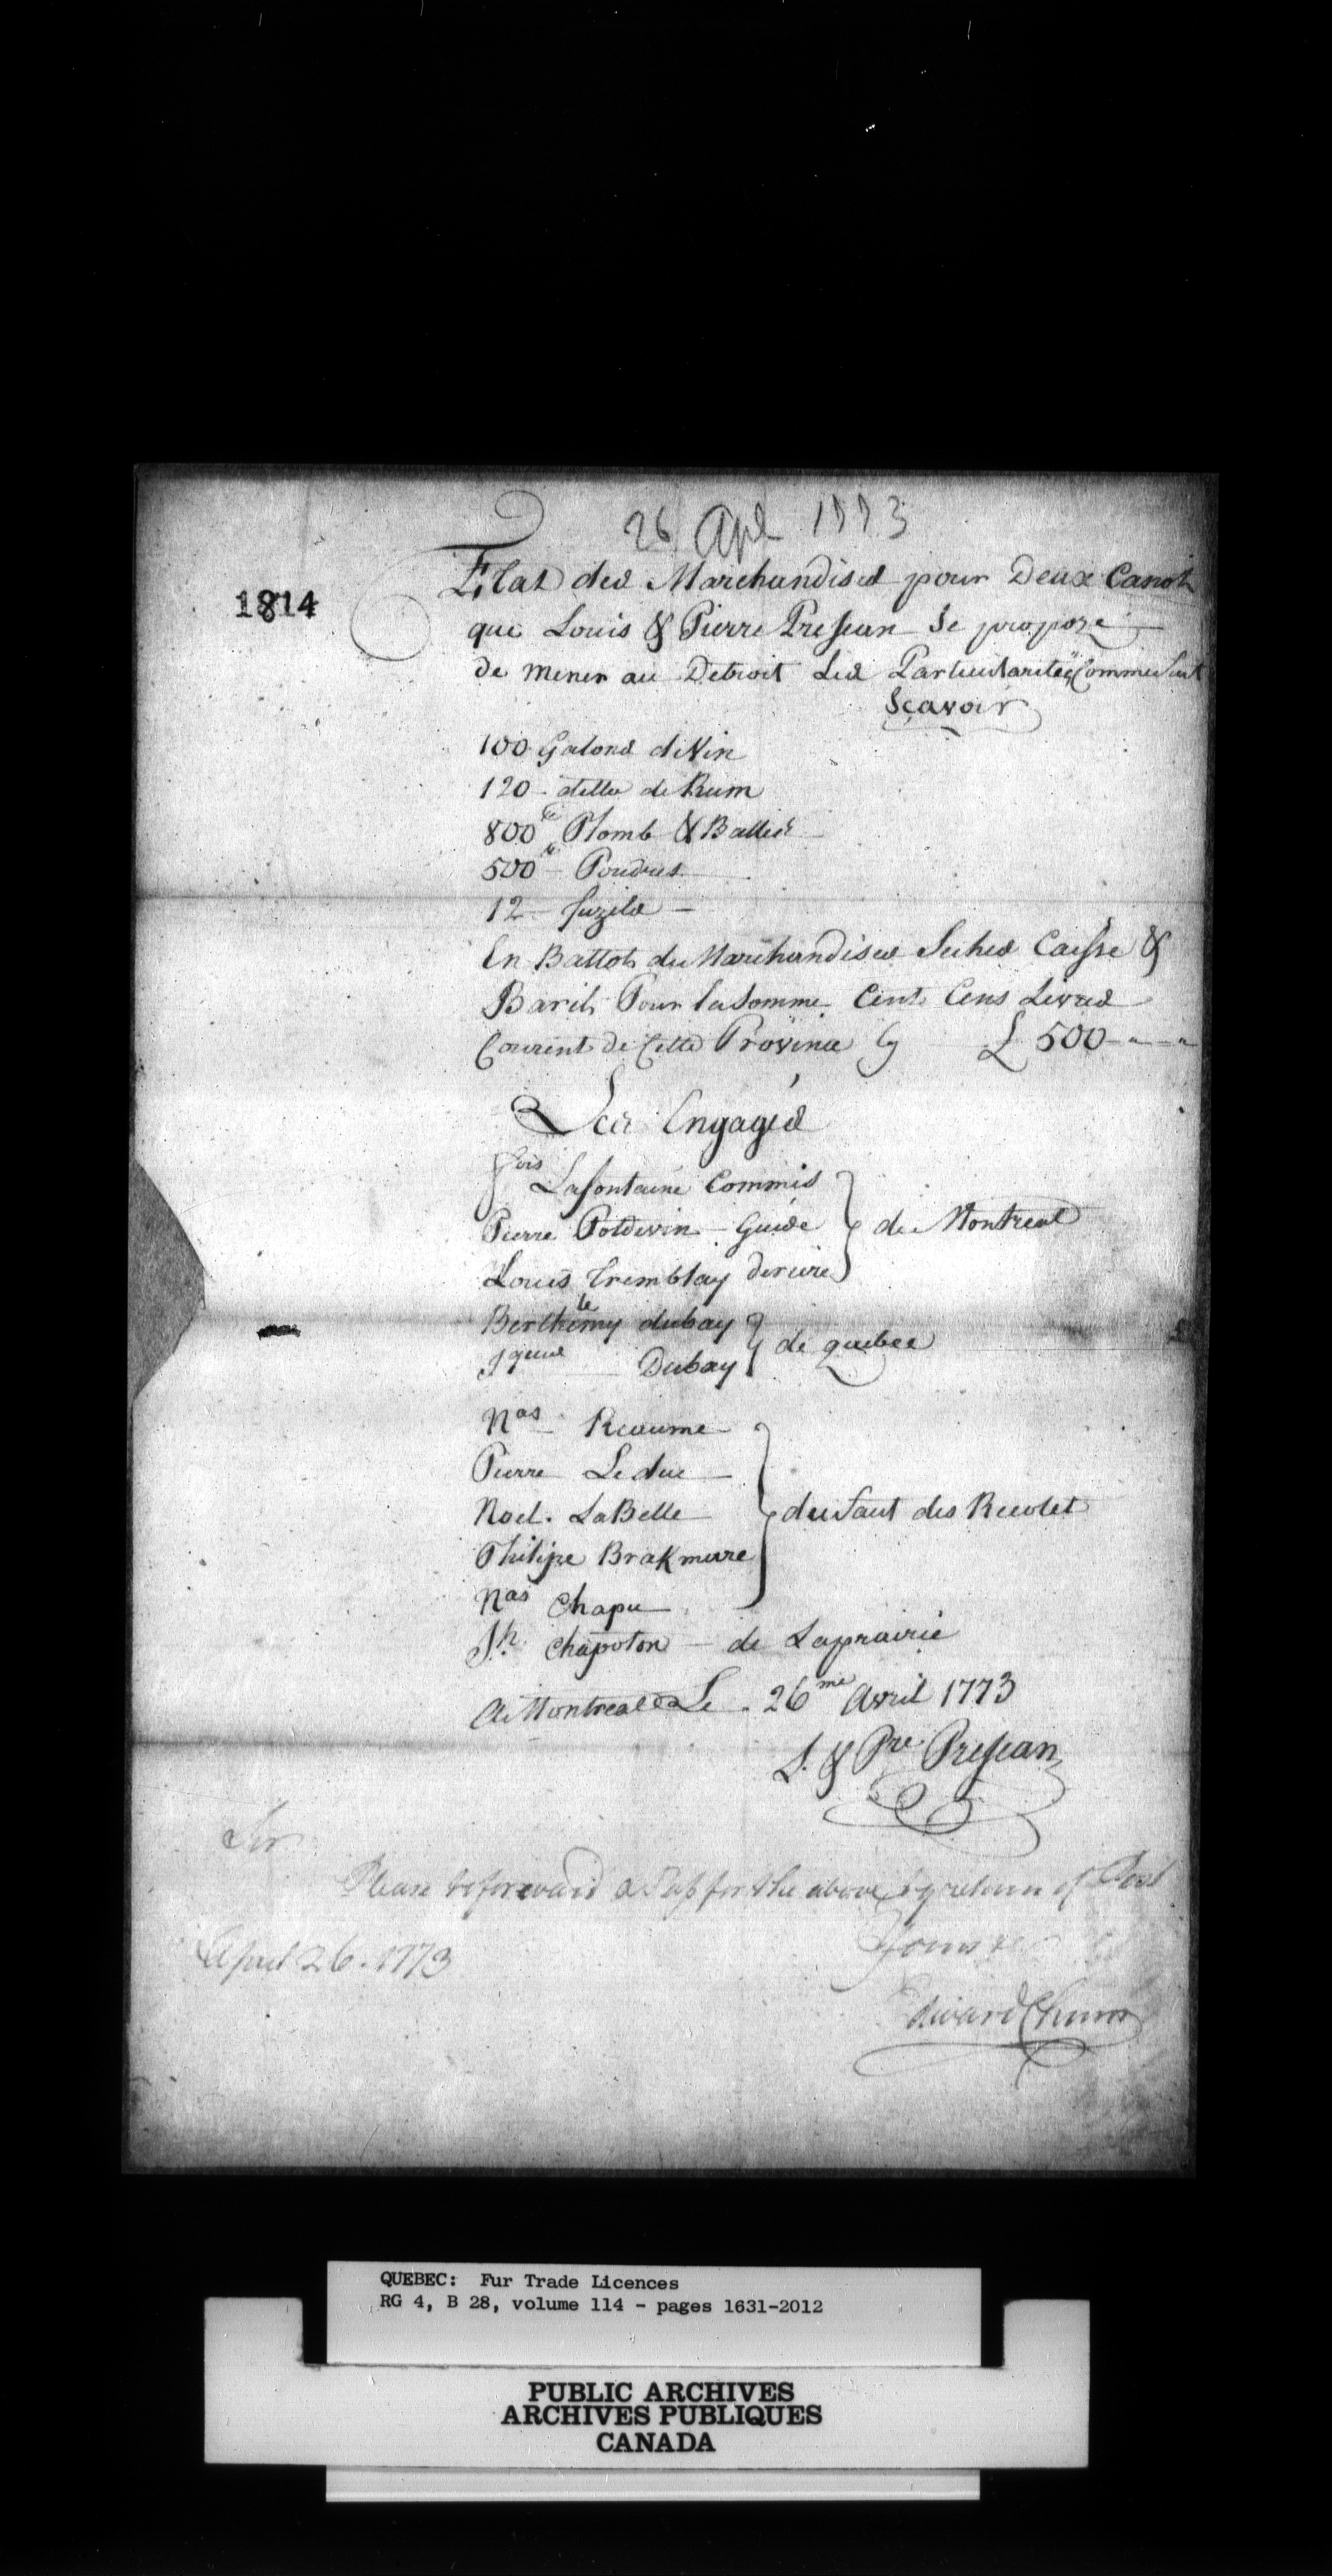 26 Apl 1773
1814
Etat des Marchandises pour Deux Canots
que Louis & Pierre Presean Se propose
de mener au Detroit Les Particularitéz Comme Suit
Sçavoir
100 Galons de Vin
120 - ditto de Rum
800 lb Plomb & Balles
500 lb - Poudres
12 - fuzils -
En Ballots de Marchandises Seches Caisse &
Barils Pour la Somme Cent Cens Livres
Courent de Cette Province £ 500 - " - "
Les Engagés
fois Lafontaine Commis
Pierre Potdevin - Guide } de Montreal
Louis Tremblay Deriere
Berthelemy dubay
Dubay } de quebec
Nas Reaume
Pierre Leduc
Noel. LaBelle } du Saut des Recolet
Philipe Brakmere
Nas Chapu
Jh Chapoton - de Laprairie
A Montreal Le 26me Avril 1773
L. & Pre Presean
Sir
Please to forward a Pass for the above by return of Post
Yours &c
April 26. 1773
Edward Chinn
QUEBEC: Fur Trade Licences
RG 4, B 28, volume 114 - pages 1631-2012
PUBLIC ARCHIVES
ARCHIVES PUBLIQUES
CANADA